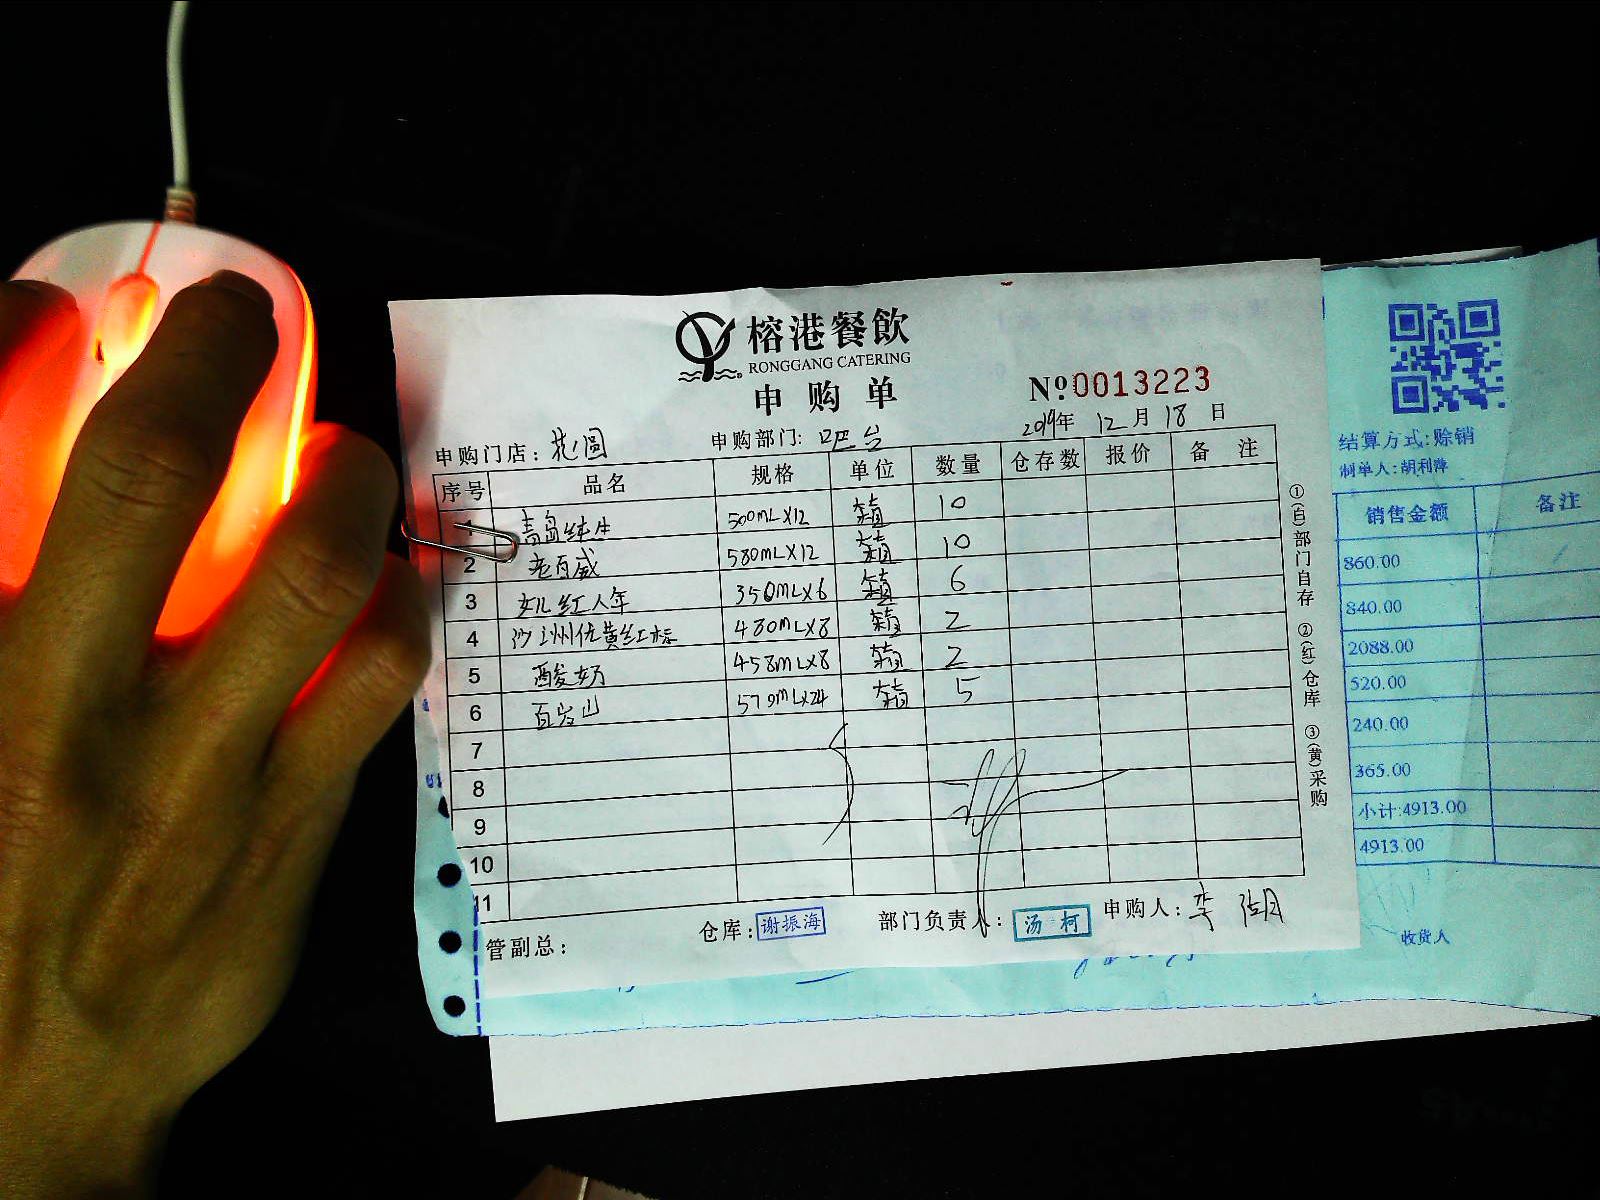 榕港餐飲
RONGGANG CATERING
申购单
№0013223
2019年 12月 18日
申购门店: 花园 申购部门: 吧台
序号 品名 规格 单位 数量 仓存数 报价 备注
1 青岛纯生 500mL×12 箱 10
2 老百威 580mL×12 箱 10
3 女儿红八年 350mL×6 箱 6
4 沙洲优黄红标 480mL×8 箱 2
5 酸奶 458mL×8 箱 2
6 百岁山 570mL×24 箱 5
7
8
9
10
11
管副总: 仓库: 谢振海 部门负责人: 汤柯 申购人: 李
①(白)部门自存 ②(红)仓库 ③(黄)采购
结算方式:赊销
制单人:胡利萍
销售金额 备注
860.00
840.00
2088.00
520.00
240.00
365.00
小计:4913.00
4913.00
收货人